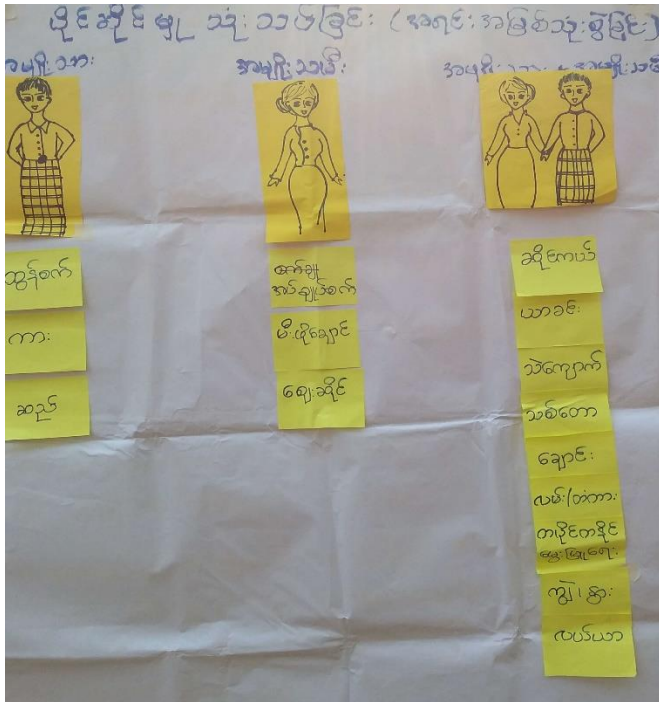 ပိုင်ဆိုင်မှု သုံးသပ်ခြင်း (အရင်းအမြစ်သုံးစွဲခြင်း)
အမျိုးသား
အမျိုးသမီး
အမျိုးသား + အမျိုးသမီး
ထွန်စက်
ကား
ဆည်
စက်ချု
အပ်ချုပ်စက်
မီးဖိုချောင်
ဈေးဆိုင်
ဆိုင်ကယ်
ယာခင်း
သဲကျောက်
သစ်တော
ချောင်း
လမ်း/တံတား
ကပိုင်ကဒိုင်
မွေးမြူရေး
ကျွဲ၊ နွား
လယ်ယာ